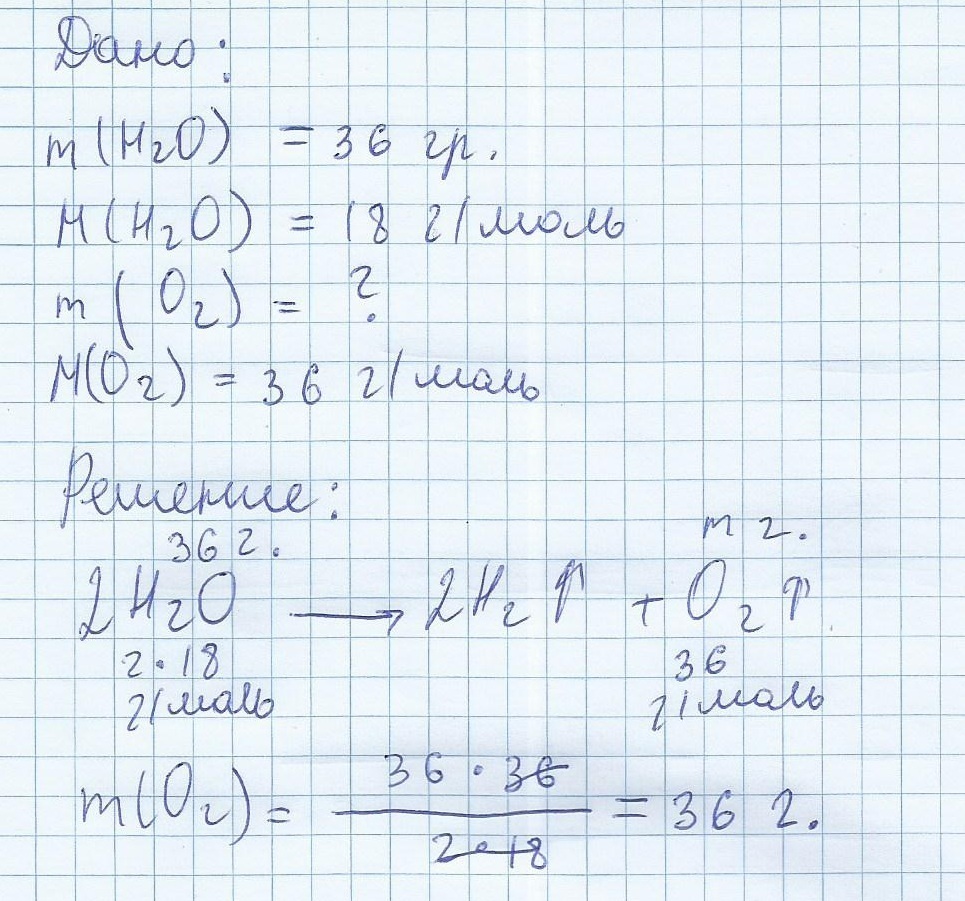 Дано:
m(H₂O) = 36 гр.
M(H₂O) = 18 г/моль
m(O₂) = ?
M(O₂) = 36 г/моль
Решение:
36 г. m г.
2H₂O → 2H₂↑ + O₂↑
2·18 36
г/моль г/моль
m(O₂) = 36 · 36 / 2·18 = 36 г.